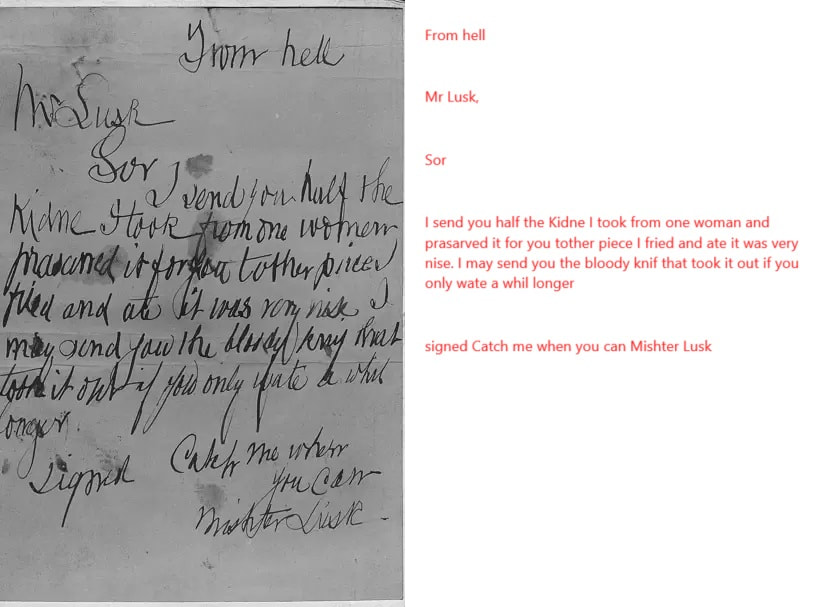 From hell
Mr Lusk
Sor
I send you half the
Kidne I took from one women
prasarved it for you tother piece I
fried and ate it was very nise I
may send you the bloody knif that
took it out if you only wate a whil
longer.
signed Catch me when
you can
Mishter Lusk.
From hell
Mr Lusk,
Sor
I send you half the Kidne I took from one woman and
prasarved it for you tother piece I fried and ate it was very
nise. I may send you the bloody knif that took it out if you
only wate a whil longer
signed Catch me when you can Mishter Lusk